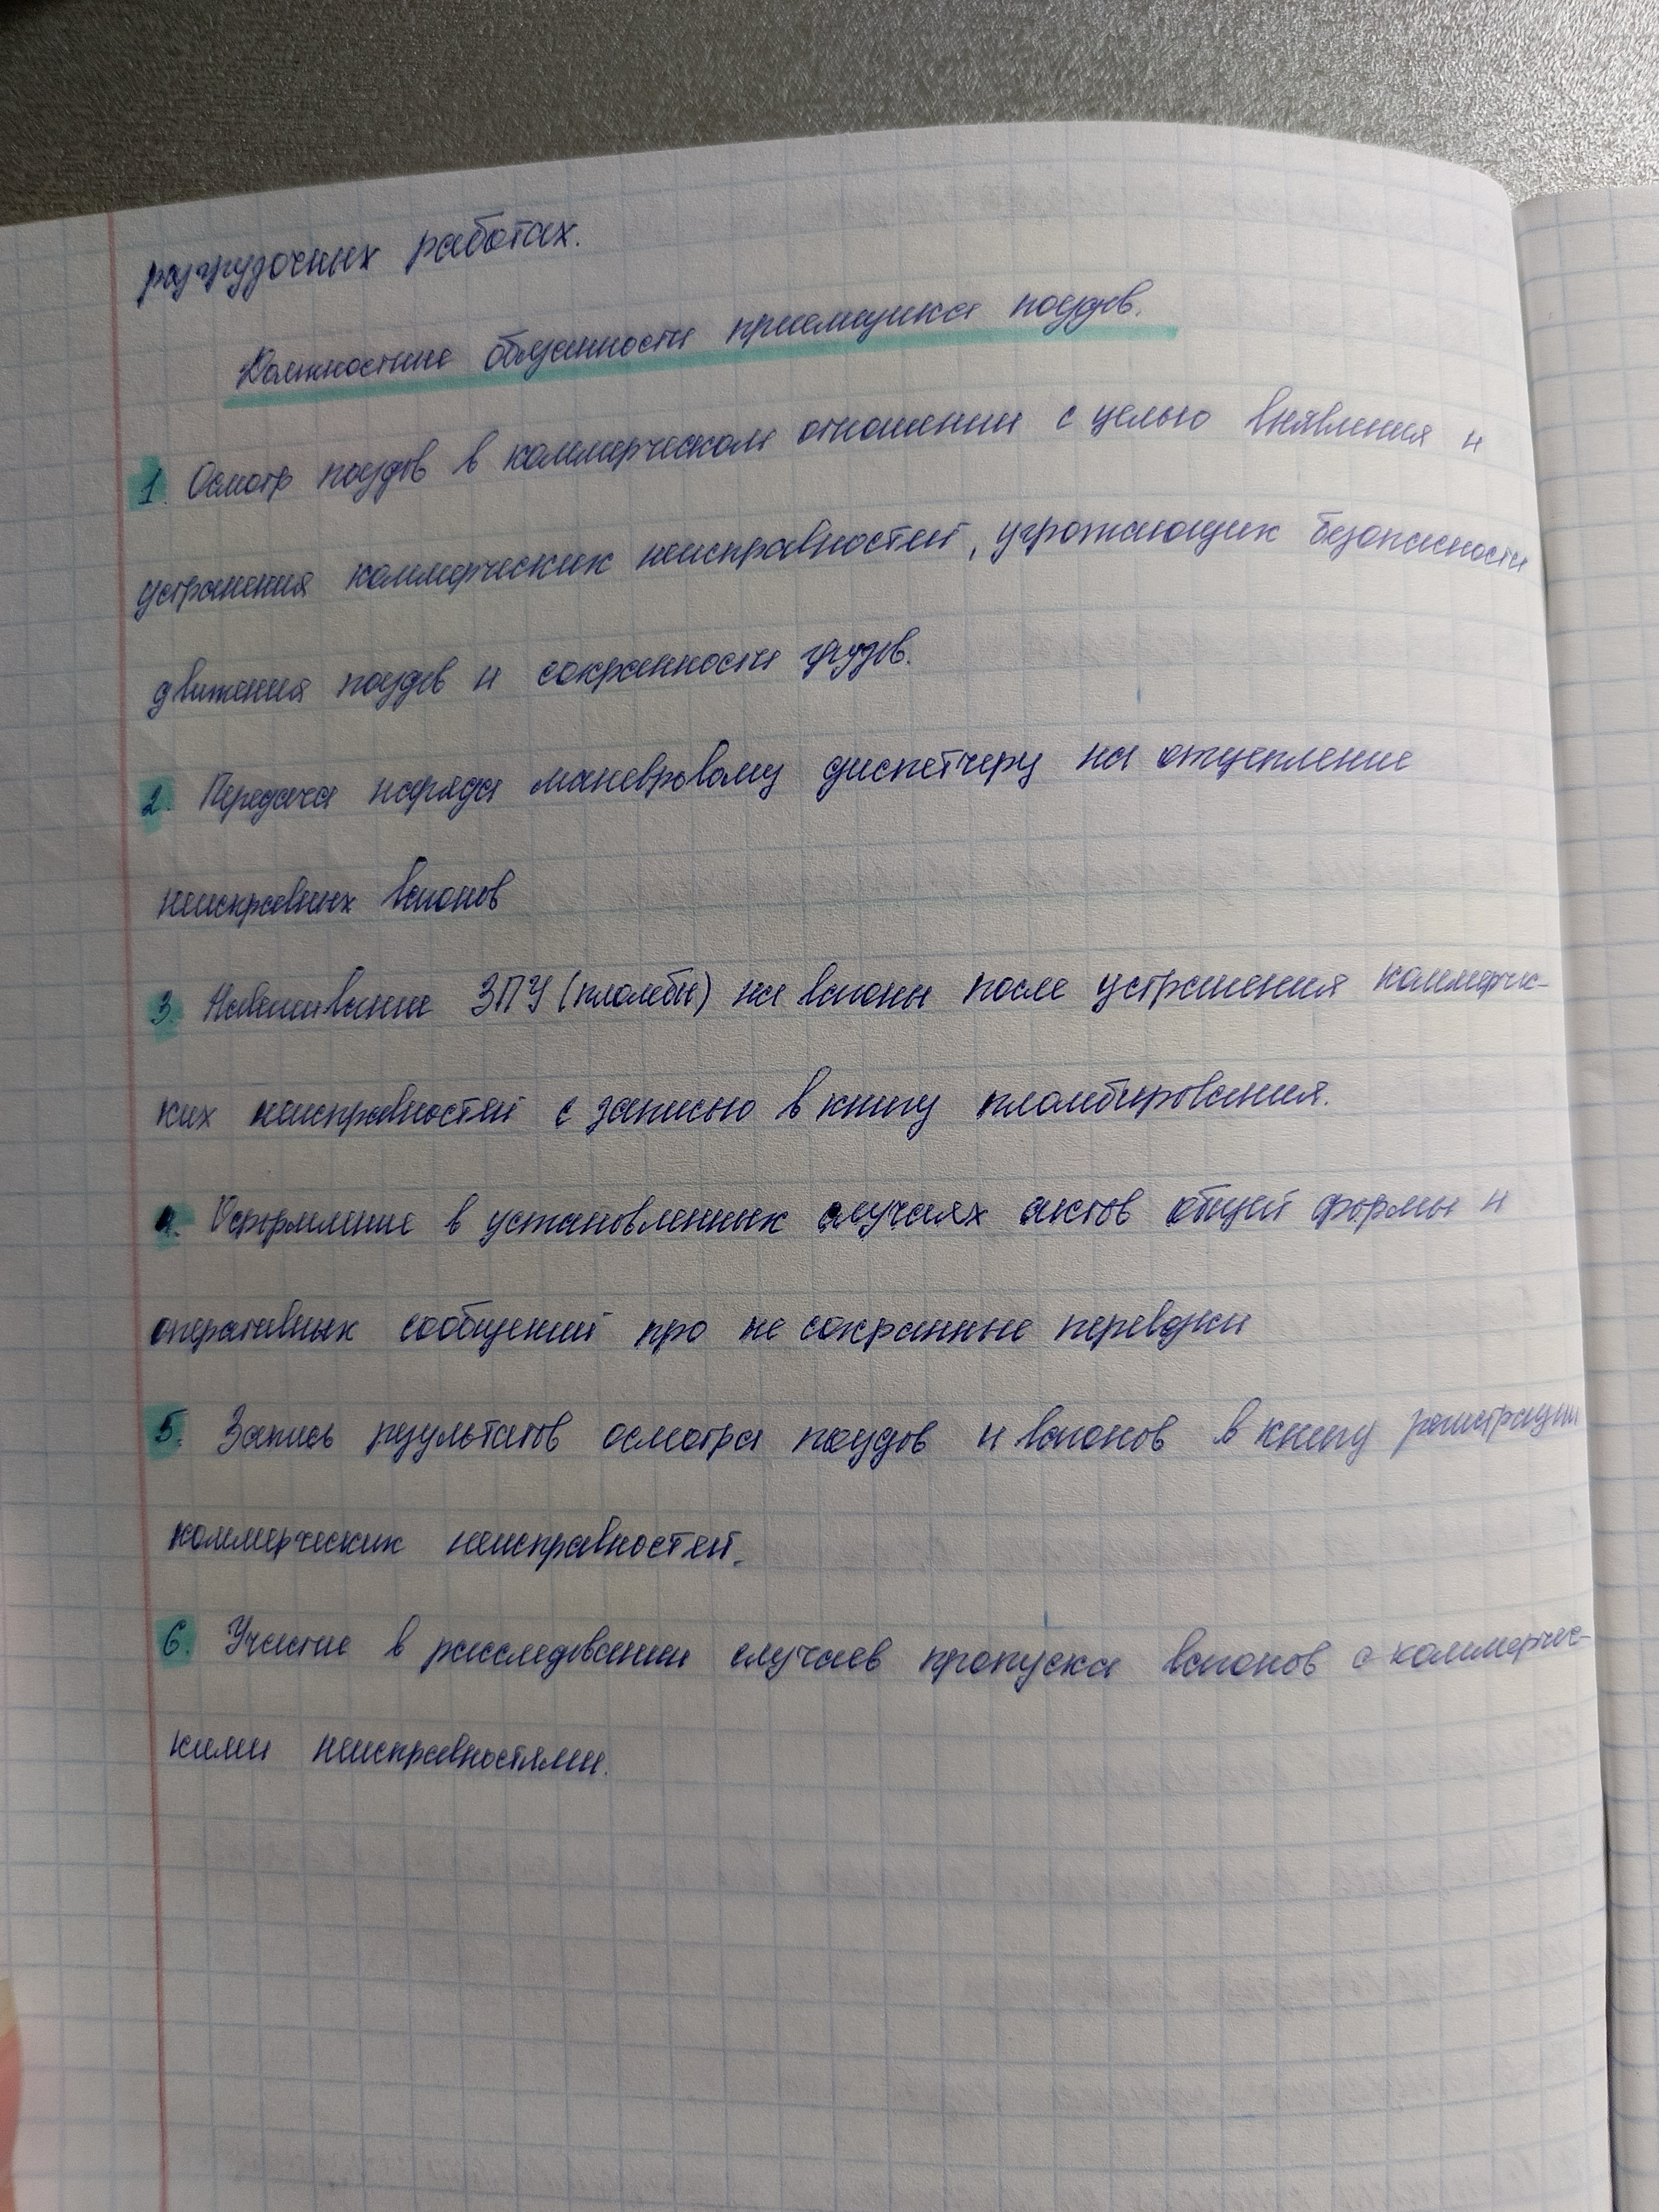 разгрузочных работах.
Должностные обязанности приемщика поездов.
1. Осмотр поездов в коммерческом отношении с целью выявления и
устранения коммерческих неисправностей, угрожающих безопасности
движения поездов и сохранности грузов.
2. Передача наряда маневровому диспетчеру на отцепление
неисправных вагонов
3. Навешивание ЗПУ (пломбы) на вагоны после устранения коммерчес-
ких неисправностей с записью в книгу пломбирования.
4. Оформление в установленных случаях актов общей формы и
оперативных сообщений про не сохранные перевозки
5. Запись результатов осмотра поездов и вагонов в книгу регистрации
коммерческих неисправностей.
6. Участие в расследовании случаев пропуска вагонов с коммерчес-
кими неисправностями.